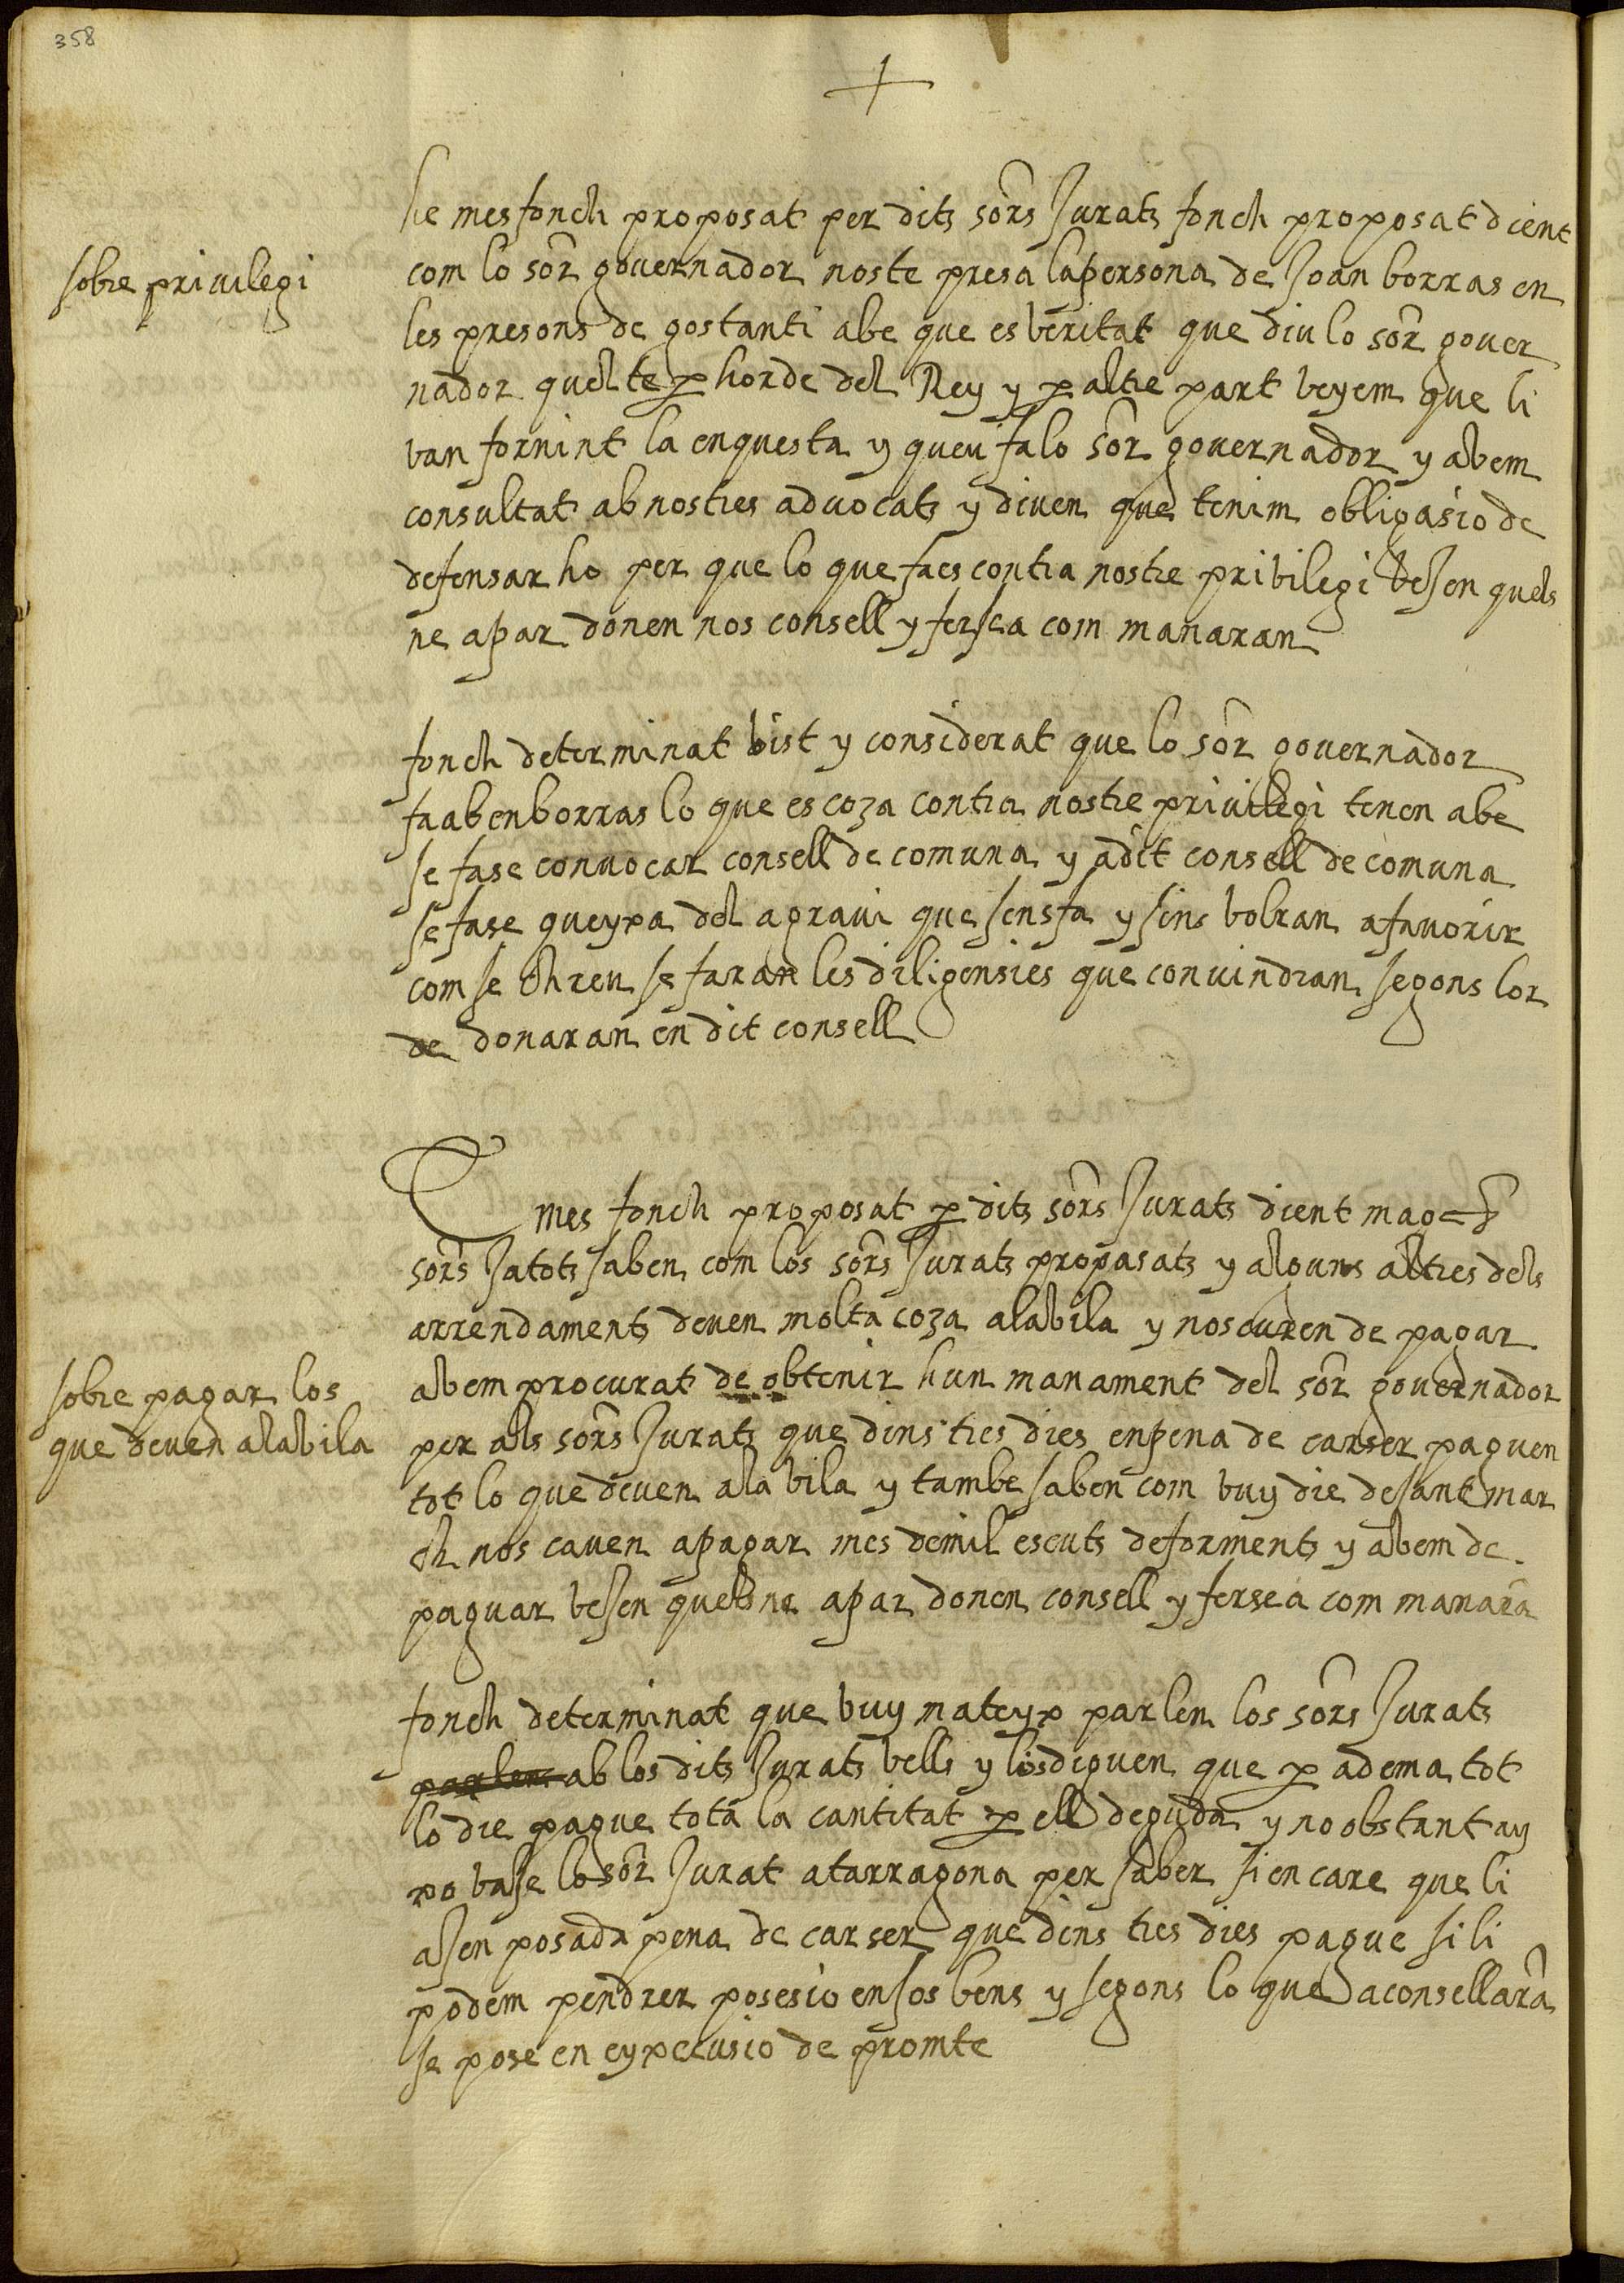 358
he mes fonch proposat per dits sors Jurats fonch proposat dient
sobre privilegi
com lo sor governador noste presa la persona de Joan borras en
les presons de gostanti abe que es beritat que diu lo sor gover
nador quell te p horde del Rey y p altre part beyem que li
van fornint la enquesta y queu fa lo sor governador y abem
consultat ab nostres advocats y diven que tenim obligasio de
defensar ho per que lo que fa es contra nostre pribilegi besen quels
ne apar donen nos consell y fersea com manaran
fonch determinat bist y considerat que lo sor governador
fa ab en borras lo que es coza contra nostre privilegi tenen abe
se fase convocar consell de comuna y a dit consell de comuna
se fase queyxa del agravi que sens fa y sins bolran afavorir
com se chreu se faran les diligensies que convindran segons lor
de donaran en dit consell
E mes fonch proposat p dits sors Jurats dient mag
sors Ja tots saben com los sors Jurats propasats y alguns altres dels
arrendaments deven molta coza a la bila y nos curen de pagar
sobre pagar los
que deven a la bila
abem procurat de obtenir hun manament del sor governador
per als sors Jurats que dins tres dies en pena de carser paguen
tot lo que deven a la bila y tambe saben com buy die de sant mar
ch nos cauen a pagar mes de mil escuts de forments y abem de
paguar besen quels ne apar donen consell y fersea com manara
fonch determinat que buy mateyx parlen los sors Jurats
parlen ab los dits Jurats bells y los diguen que p a dema tot
lo die pague tota la cantitat p ell deguda y no obstant ay
xo base lo sor Jurat a tarragona per saber si encare que li
asen posada pena de carser que dins tres dies pague si li
podem pendrer posesio en sos bens y segons lo que aconsellara
se pose en eyxecusio de promte